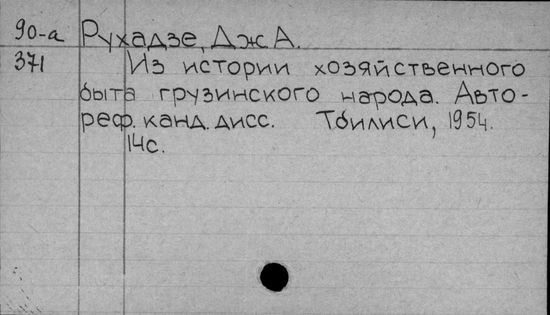 90-а Рухадзе, Дж А.
371 Из истории хозяйственного
быта грузинского народа. Авто-
реф. канд. дисс. Тбилиси, 1954.
14с.